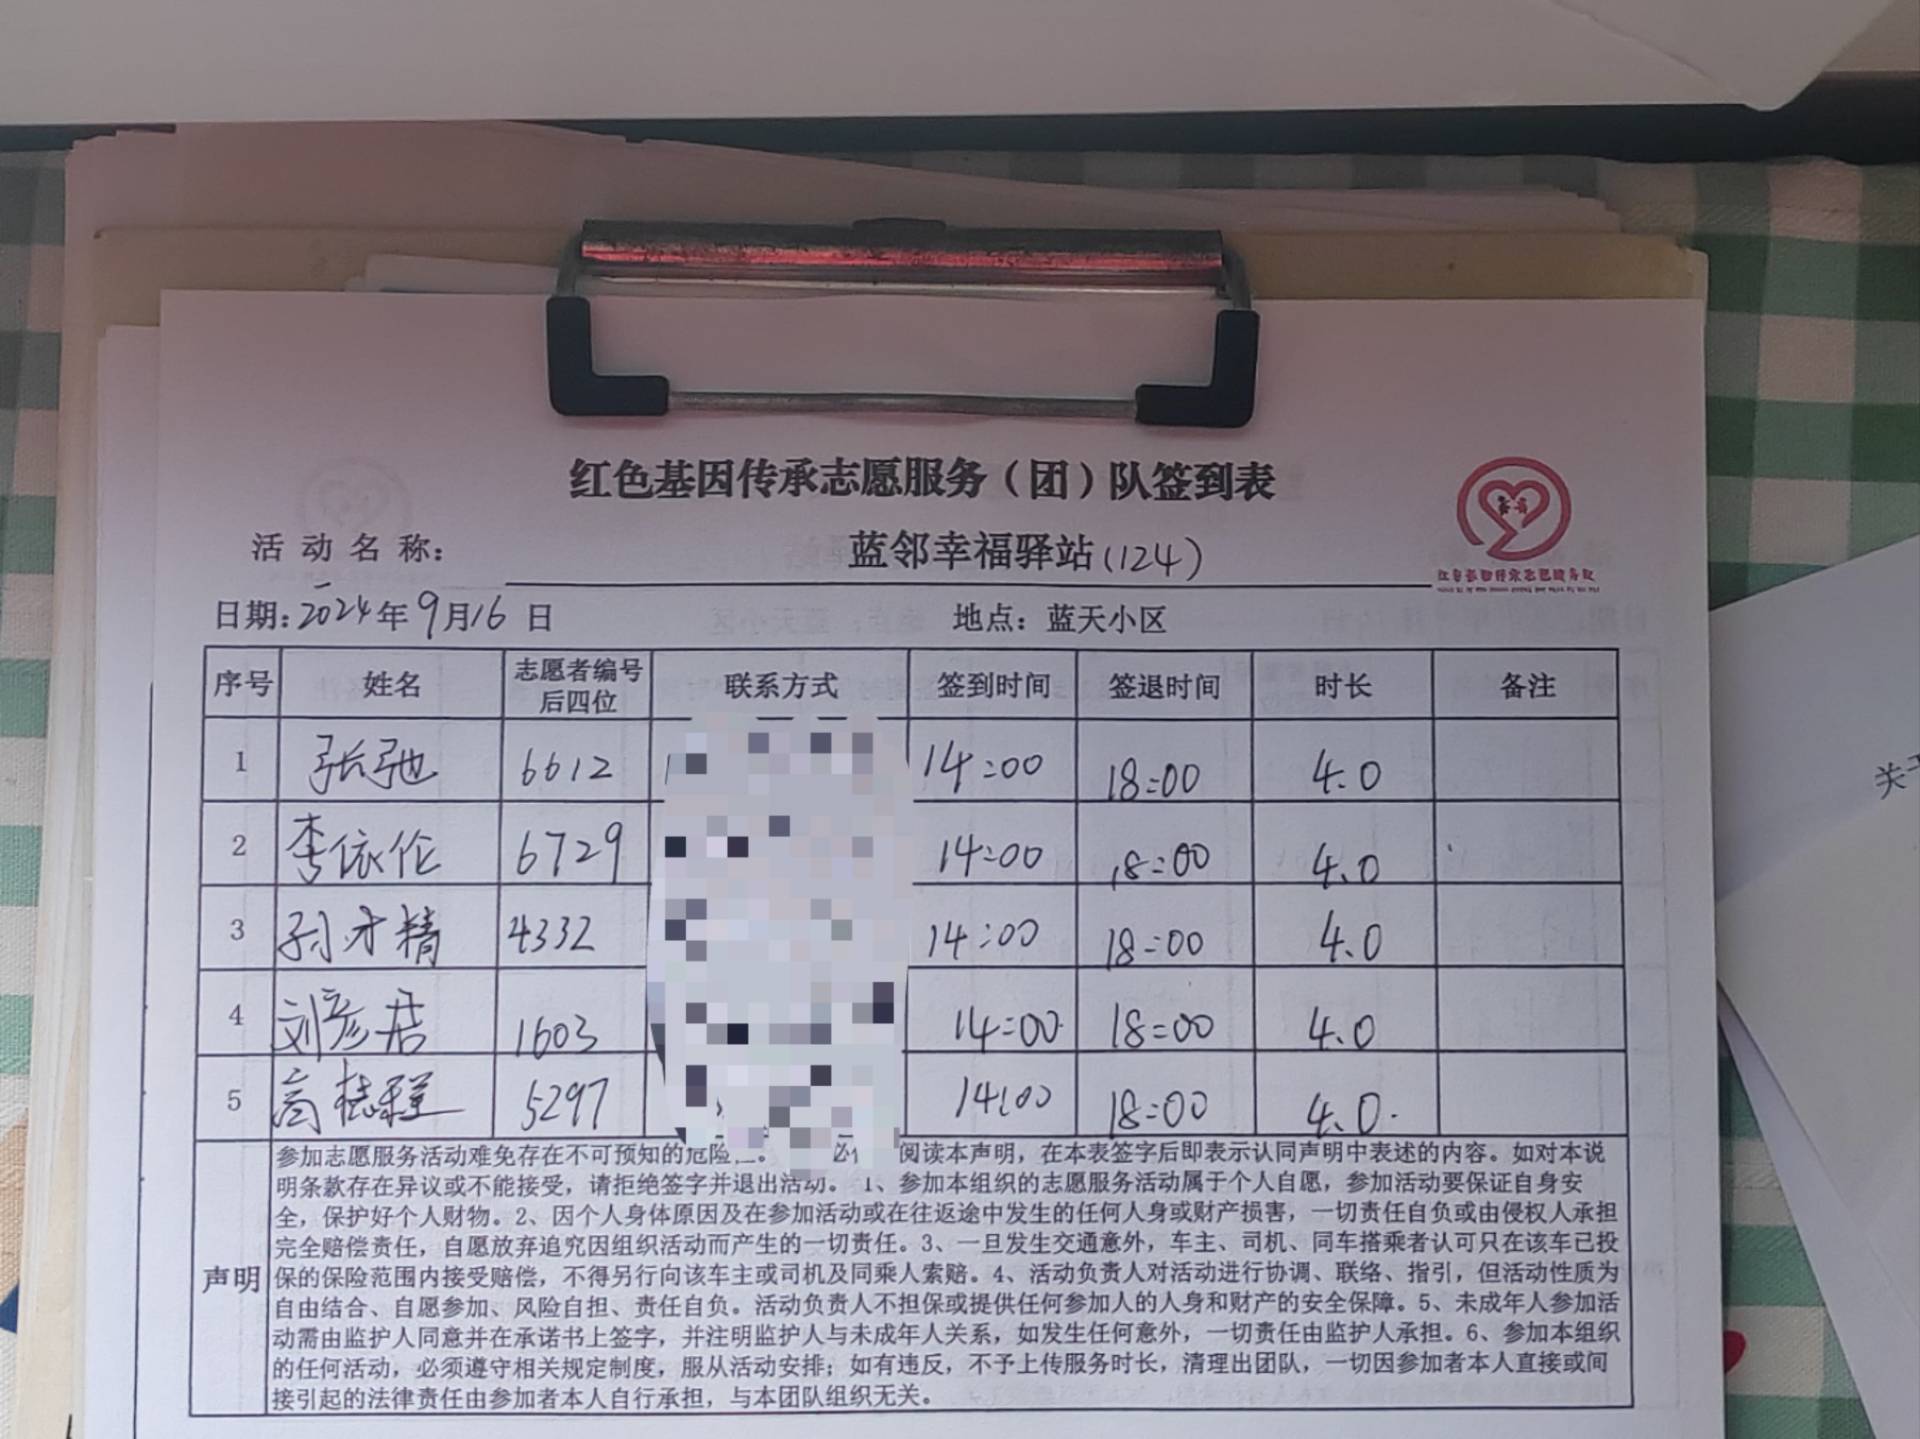 红色基因传承志愿服务（团）队签到表
活动名称： 蓝邻幸福驿站(124)
日期：2024年9月16日 地点：蓝天小区
序号 姓名 志愿者编号后四位 联系方式 签到时间 签退时间 时长 备注
1 张弛 6612 14:00 18:00 4.0
2 李依伦 6729 14:00 18:00 4.0
3 孙才精 4332 14:00 18:00 4.0
4 刘彦君 1603 14:00 18:00 4.0
5 高 5297 14:00 18:00 4.0
声明
参加志愿服务活动难免存在不可预知的危险 阅读本声明，在本表签字后即表示认同声明中表述的内容。如对本说
明条款存在异议或不能接受，请拒绝签字并退出活动。1、参加本组织的志愿服务活动属于个人自愿，参加活动要保证自身安
全，保护好个人财物。2、因个人身体原因及在参加活动或在往返途中发生的任何人身或财产损害，一切责任自负或由侵权人承担
完全赔偿责任，自愿放弃追究因组织活动而产生的一切责任。3、一旦发生交通意外，车主、司机、同车搭乘者认可只在该车已投
保的保险范围内接受赔偿，不得另行向该车主或司机及同乘人索赔。4、活动负责人对活动进行协调、联络、指引，但活动性质为
自由结合、自愿参加、风险自担、责任自负。活动负责人不担保或提供任何参加人的人身和财产的安全保障。5、未成年人参加活
动需由监护人同意并在承诺书上签字，并注明监护人与未成年人关系，如发生任何意外，一切责任由监护人承担。6、参加本组织
的任何活动，必须遵守相关规定制度，服从活动安排；如有违反，不予上传服务时长，清理出团队，一切因参加者本人直接或间
接引起的法律责任由参加者本人自行承担，与本团队组织无关。
关于